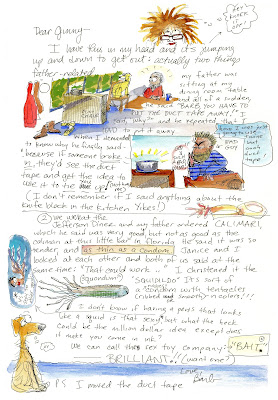 Dear Ginny—
I have this in my head and it's jumping
up and down to get out: actually two things
father-related.
my father was
sitting at my
dining room table
and all of a sudden,
he said "BARB, YOU HAVE TO
PUT THE DUCT TAPE AWAY!"
why, and he repeated that I
HAD to put it away
when I demanded
to know why he finally said
because if someone broke
in, they'd see the duct
tape and get the idea to
use it to tie me up!
(I don't remember if I said anything about the
knife block in the kitchen. Yikes!)
② we were at the
Jefferson Diner and my father ordered CALIMARI,
which he said was very good, but not as good as the
calamari at this little bar in Florida. He said it was so
tender, and as thin as a condom. Janice and I
looked at each other and both of us said at the
same time: "That could work..." I christened it the
(squondum) "SQUIDILDO" It's sort of
a condom with tentacles
(ribbed and smoothly in colors!!!)
I don't know if having a penis that looks
like a squid is that sexy, but what the heck.
Could be the million dollar idea except does
it make you come in ink?
We can call the sex toy company: "BAIT."
BRILLIANT!! (want one?)
Love,
Barb
PS I moved the duct tape